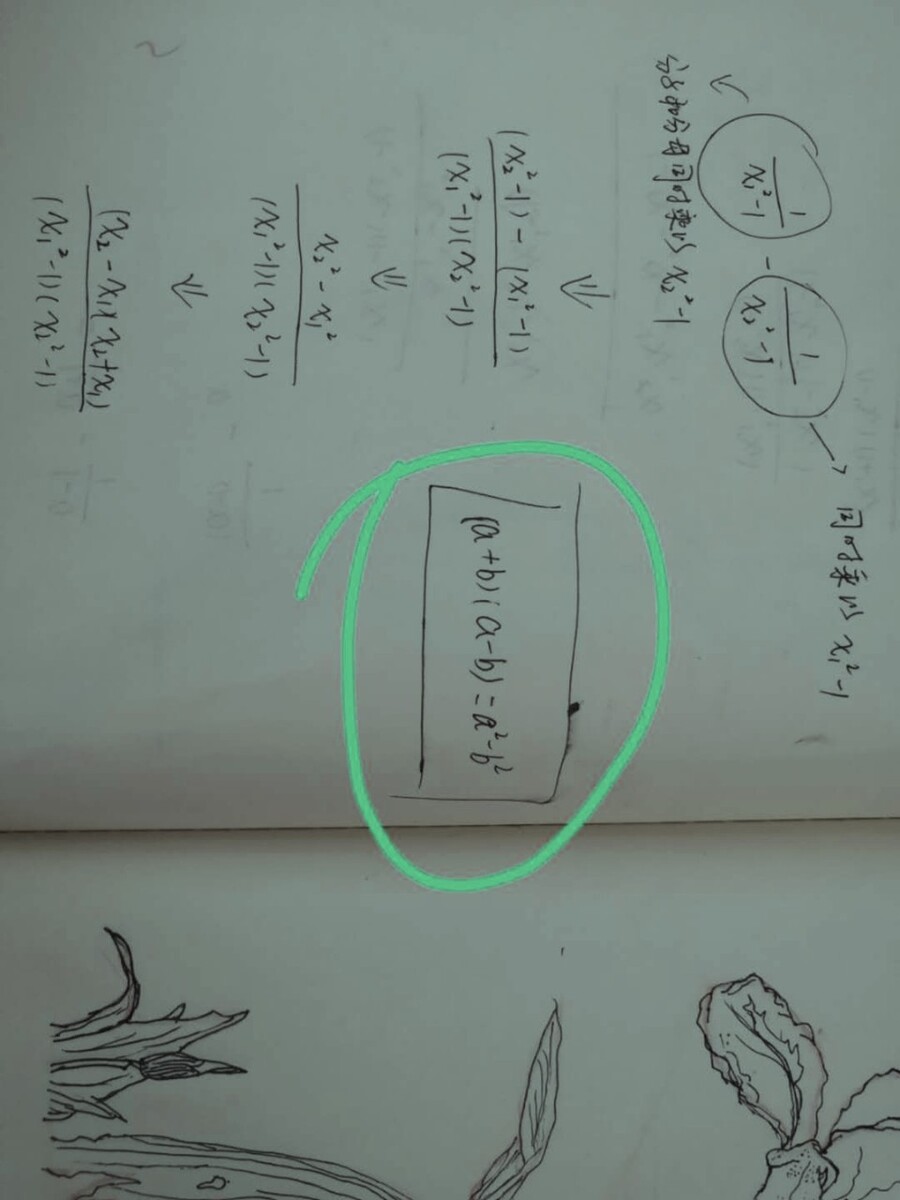 1/(x₁²-1) - 1/(x₂²-1) → 同时乘以 x₁²-1
分子和分母同时乘以 x₂²-1
⇓
((x₂²-1) - (x₁²-1))/((x₁²-1)(x₂²-1))
⇓
(x₂² - x₁²)/((x₁²-1)(x₂²-1))
(a+b)(a-b)=a²-b²
⇓
(x₂-x₁)(x₂+x₁)/((x₁²-1)(x₂²-1))